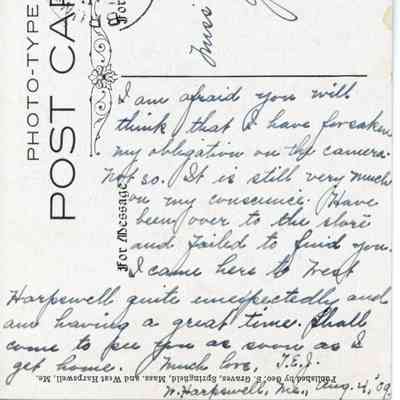 PHOTO-TYPE
POST CAR
For
Miss
For Message
I am afraid you will
think that I have forsaken
my obligation on the camera.
Not so. It is still very much
on my conscience. Have
been over to the store
and failed to find you.
I came here to West
Harpswell quite unexpectedly and
am having a great time. Shall
come to see you as soon as I
get home. Much love, T.E.J.
Published by Geo. E. Graves, Springfield, Mass. and West Harpswell, Me.
W. Harpswell, Me., Aug. 4, '09.